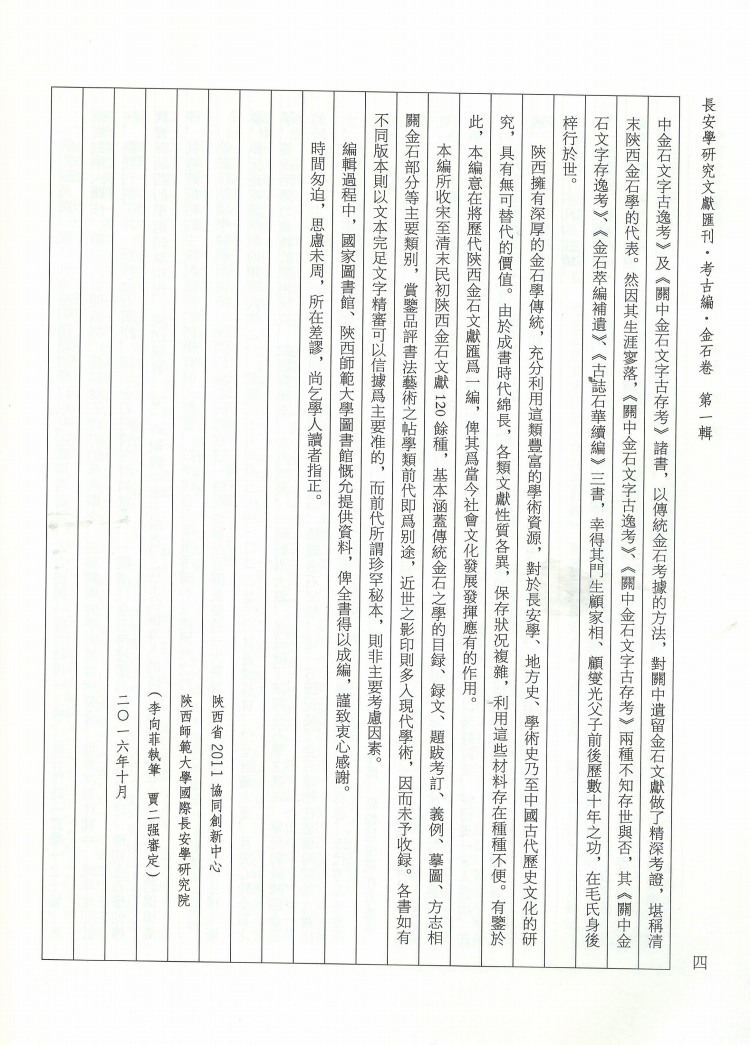 長安學研究文獻匯刊·考古編·金石卷 第一輯
四
中金石文字古逸考》及《關中金石文字古存考》諸書，以傳統金石考據的方法，對關中遺留金石文獻做了精深考證，堪稱清
末陝西金石學的代表。然因其生涯寥落，《關中金石文字古逸考》、《關中金石文字古存考》兩種不知存世與否，其《關中金
石文字存逸考》、《金石萃編補遺》、《古誌石華續編》三書，幸得其門生顧家相、顧燮光父子前後歷數十年之功，在毛氏身後
梓行於世。
陝西擁有深厚的金石學傳統，充分利用這類豐富的學術資源，對於長安學、地方史、學術史乃至中國古代歷史文化的研
究，具有無可替代的價值。由於成書時代綿長，各類文獻性質各異，保存狀况複雜，利用這些材料存在種種不便。有鑒於
此，本編意在將歷代陝西金石文獻匯爲一編，俾其爲當今社會文化發展發揮應有的作用。
本編所收宋至清末民初陝西金石文獻120餘種，基本涵蓋傳統金石之學的目録、録文、題跋考訂、義例、摹圖、方志相
關金石部分等主要類别，賞鑒品評書法藝術之帖學類前代即爲别途，近世之影印則多入現代學術，因而未予收録。各書如有
不同版本則以文本完足文字精審可以信據爲主要准的，而前代所謂珍罕秘本，則非主要考慮因素。
編輯過程中，國家圖書館、陝西師範大學圖書館慨允提供資料，俾全書得以成編，謹致衷心感謝。
時間匆迫，思慮未周，所在差謬，尚乞學人讀者指正。
陝西省2011協同創新中心
陝西師範大學國際長安學研究院
（李向菲執筆 賈二强審定）
二〇一六年十月